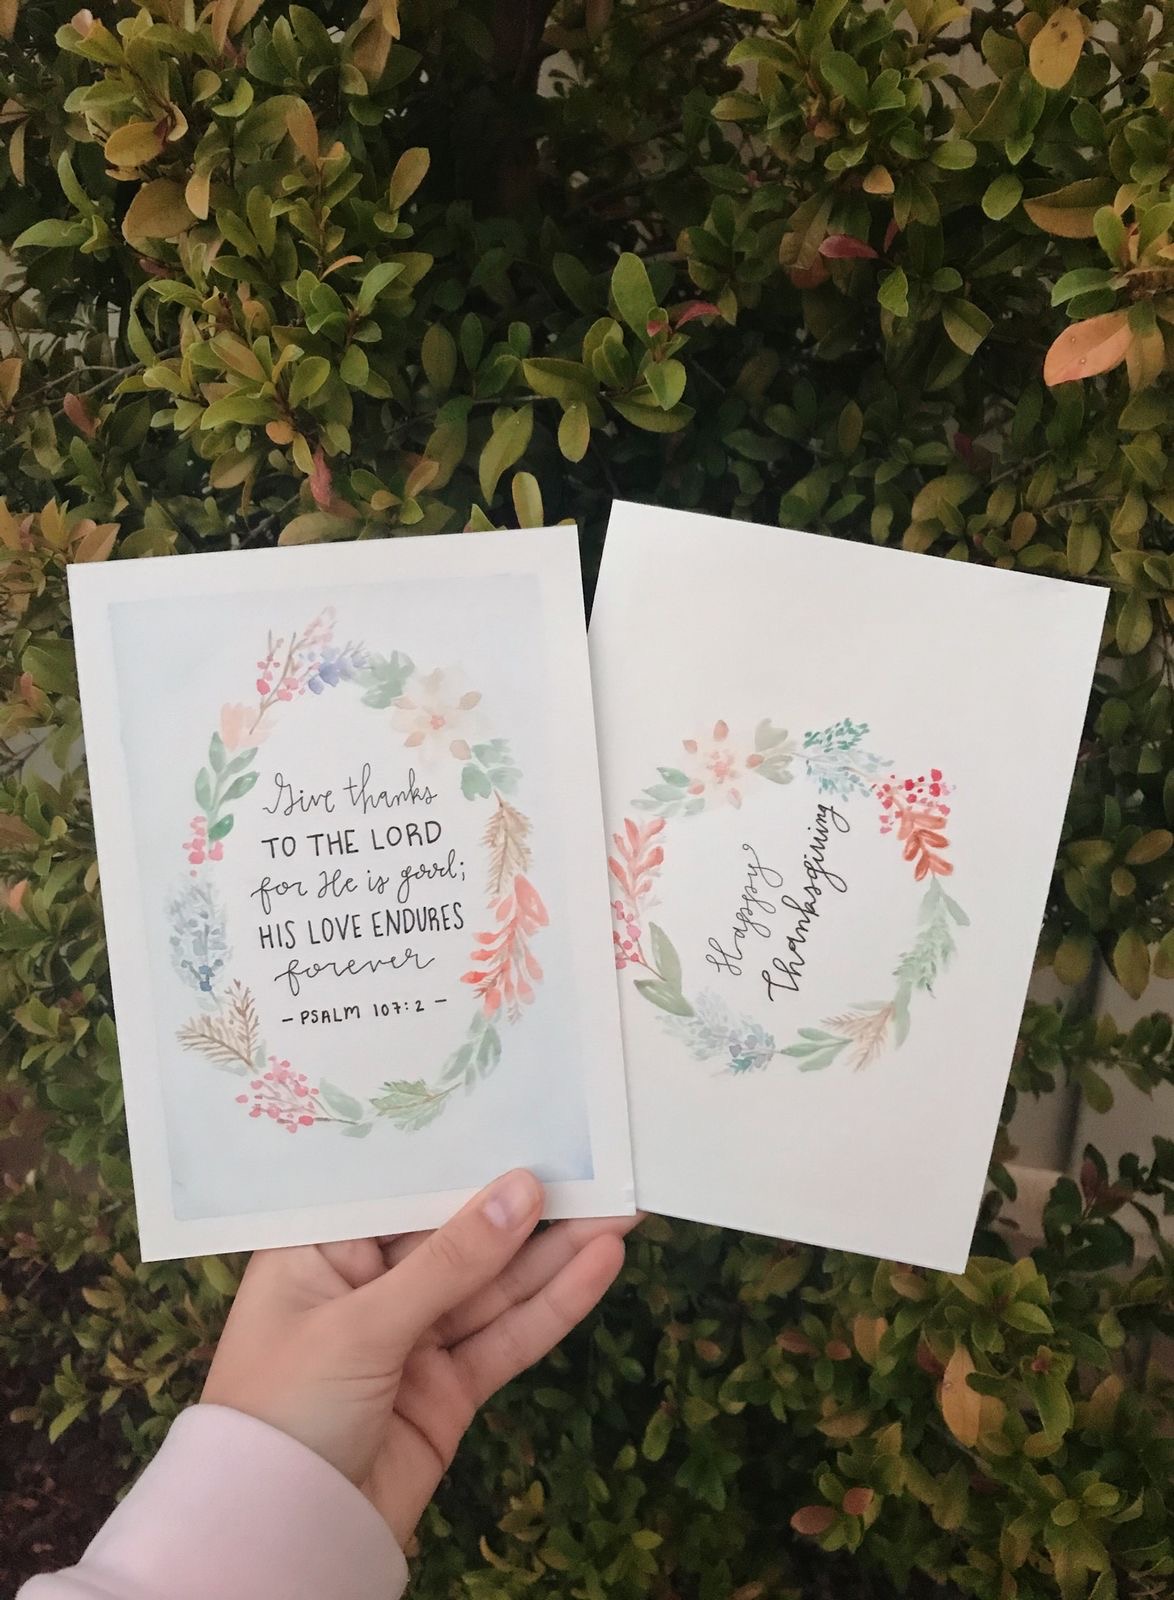 Give thanks
TO THE LORD
for He is good;
HIS LOVE ENDURES
forever
- PSALM 107:2 -
Happy
Thanksgiving